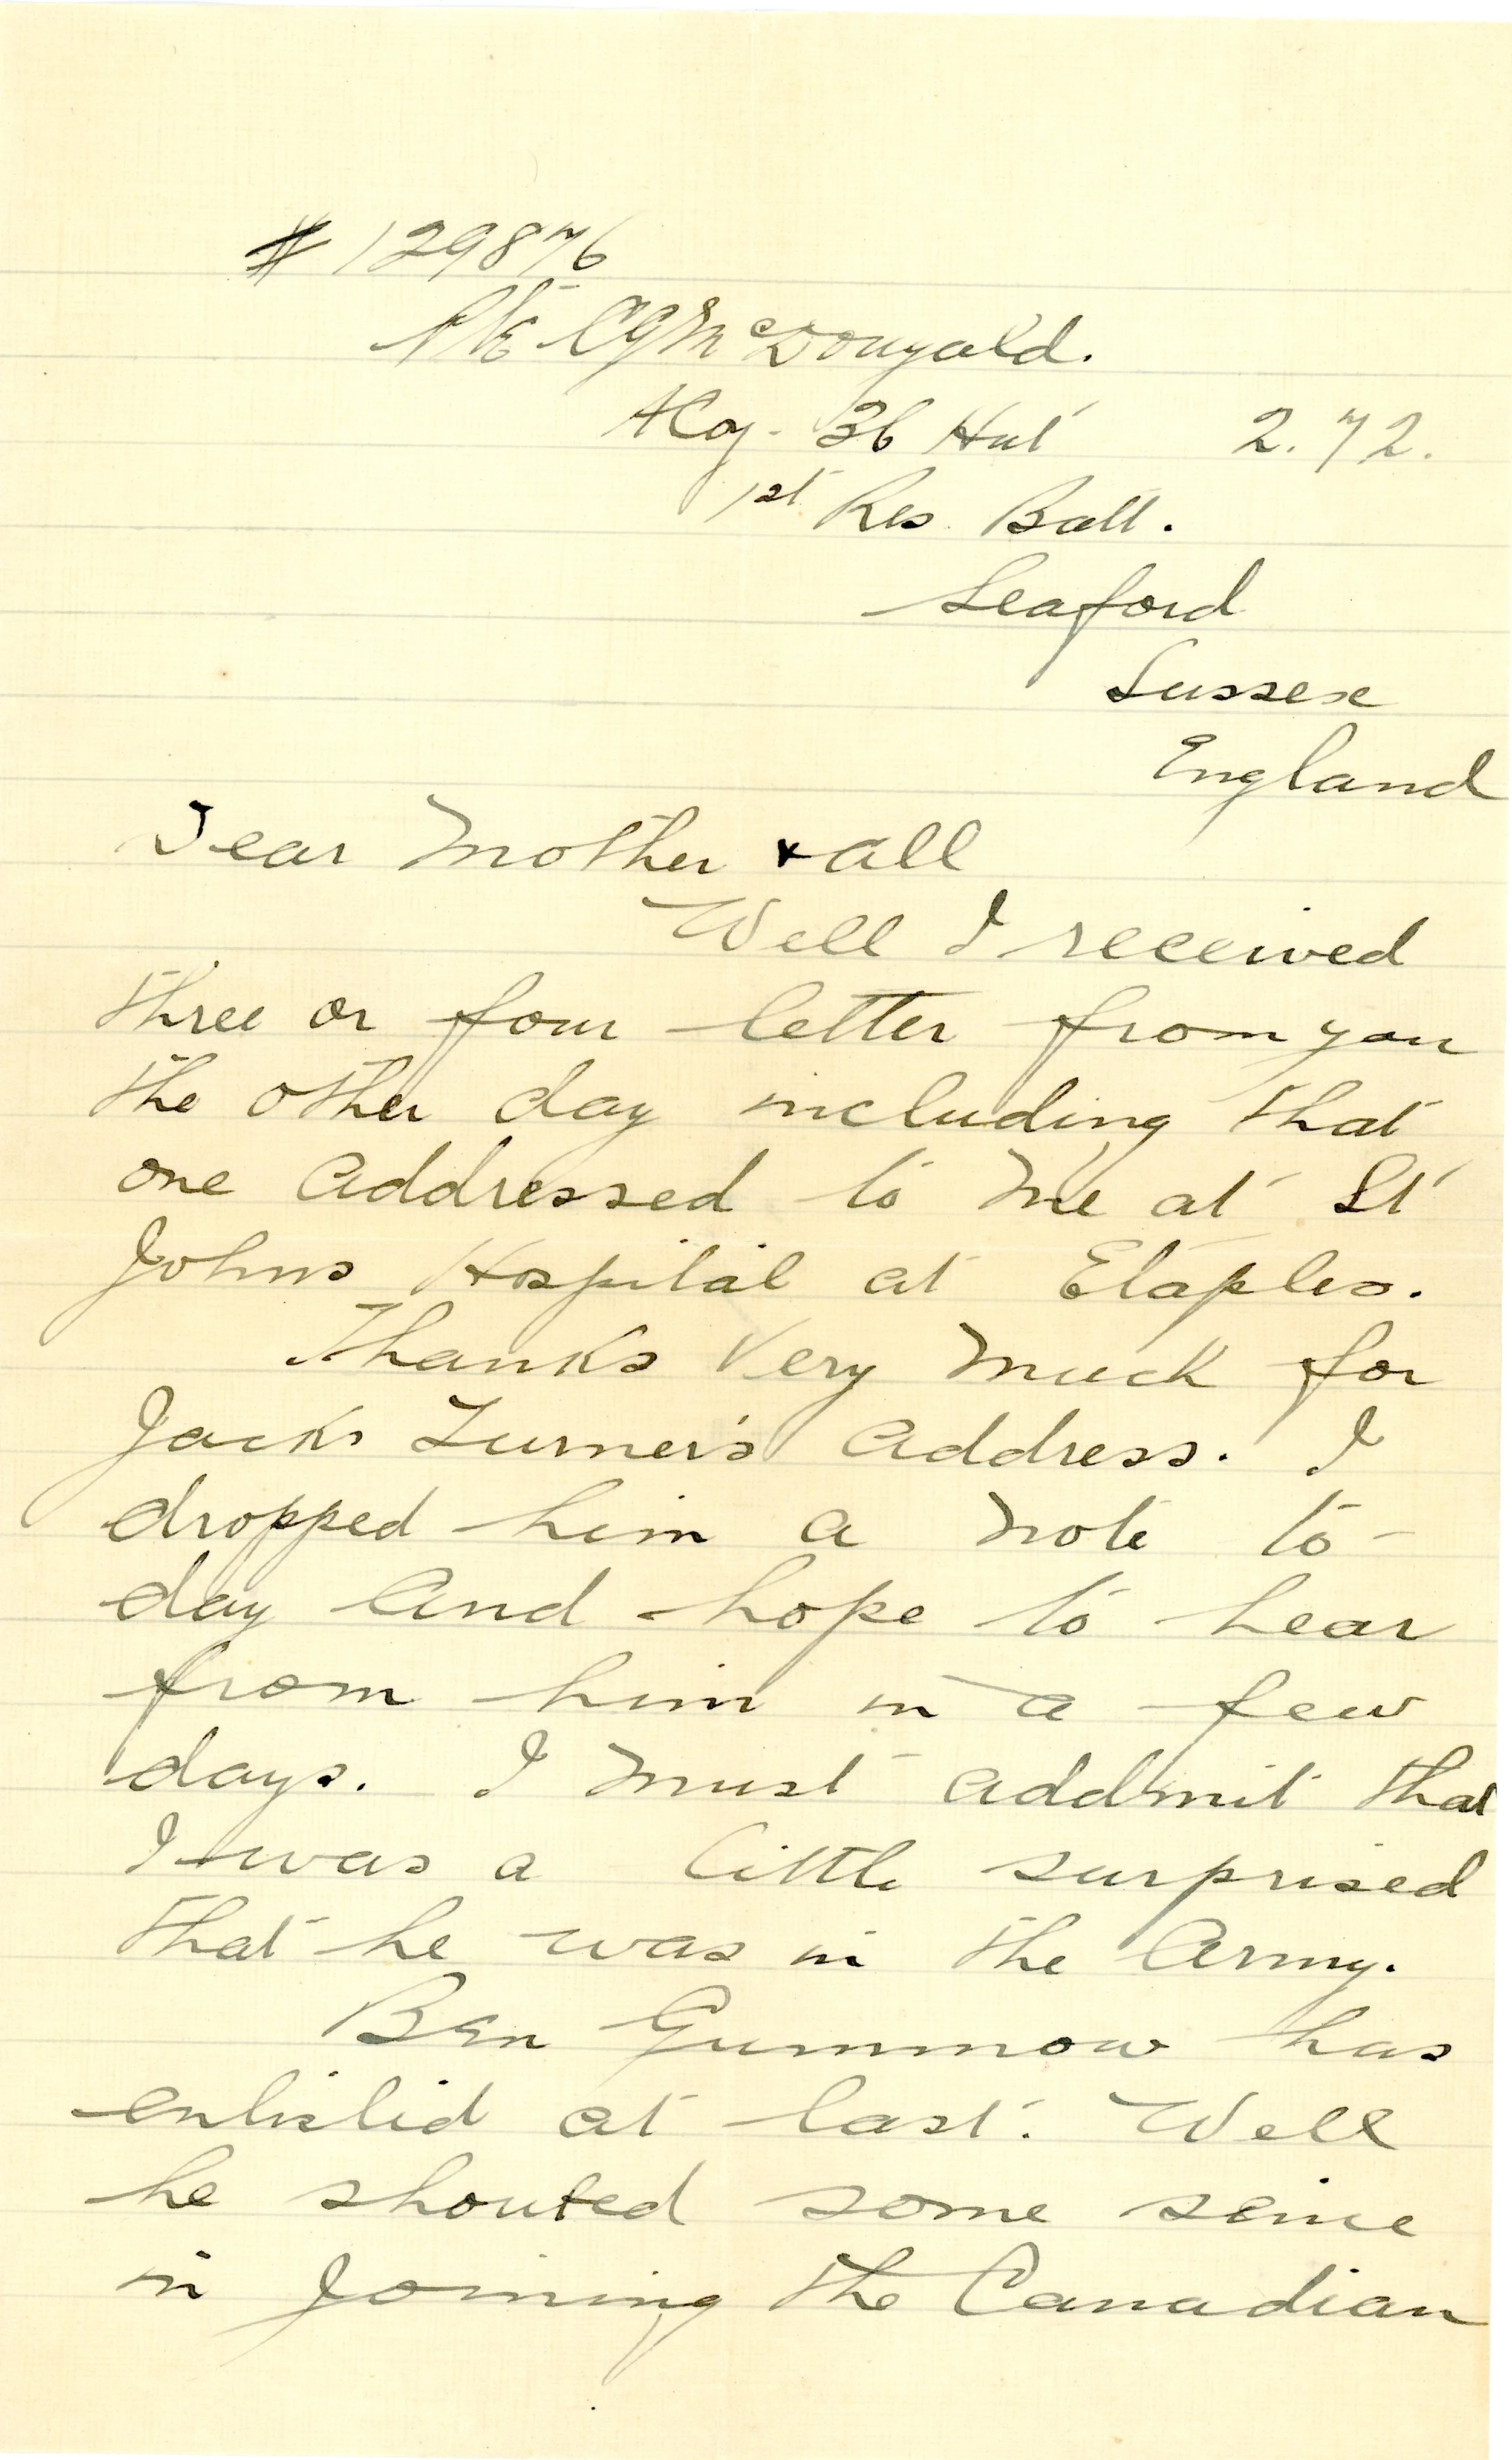 # 129876
Pte C G McDougald.
A Coy. 36 Hut 2.72.
1st Res. Batt.
Seaford
Sussex
England
Dear Mother & all
Well I received
three or four letter from you
the other day including that
one addressed to me at St
Johns Hospital at Etaples.
Thanks Very Much for
Jacks Turner's address. I
dropped him a note to-
day and hope to hear
from him in a few
days. I must addmit that
I was a little surprised
that he was in the Army.
Ben Gummow has
enlisted at last. Well
he shouted some sense
in Joining the Canadian